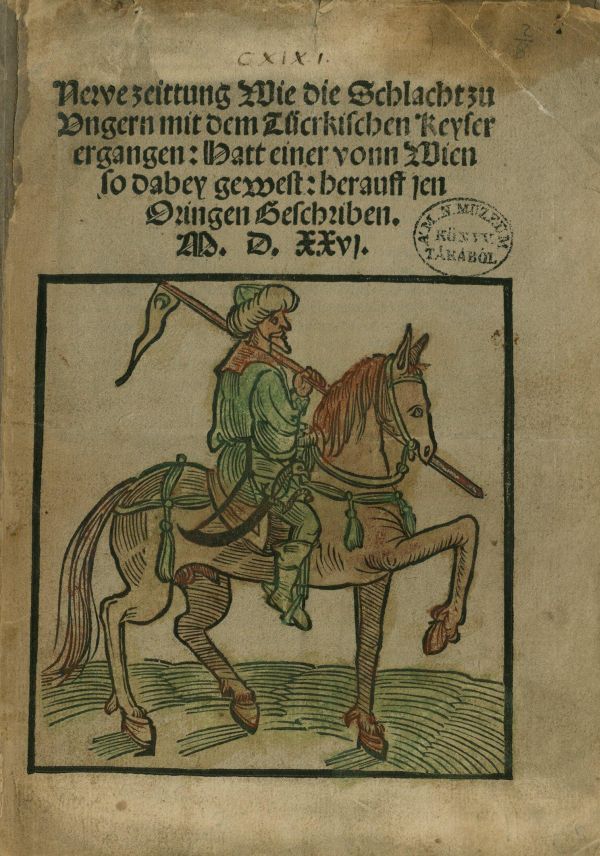 CXIXI.
Newe zeittung Wie die Schlacht zu
Vngern mit dem Tüerkischen Keyser
ergangen: Hatt einer vonn Wien
so dabey gewest: herauff jen
Oringen Geschriben.
M. D. XXvj.
A M. N. MUZEUM
KÖNYV-
TÁRÁBÓL